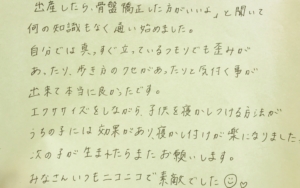 出産したら、骨盤矯正した方がいいよ」と聞いて
何の知識もなく通い始めました。
自分では真っすぐ立っているつもりでも歪みが
あったり、歩き方のクセがあったりと気付く事が
出来て本当に良かったです。
エクササイズをしながら、子供を寝かしつける方法が
うちの子には効果があり、寝かし付けが楽になりました
次の子が生まれたらまたお願いします。
みなさんいつもニコニコで素敵でした